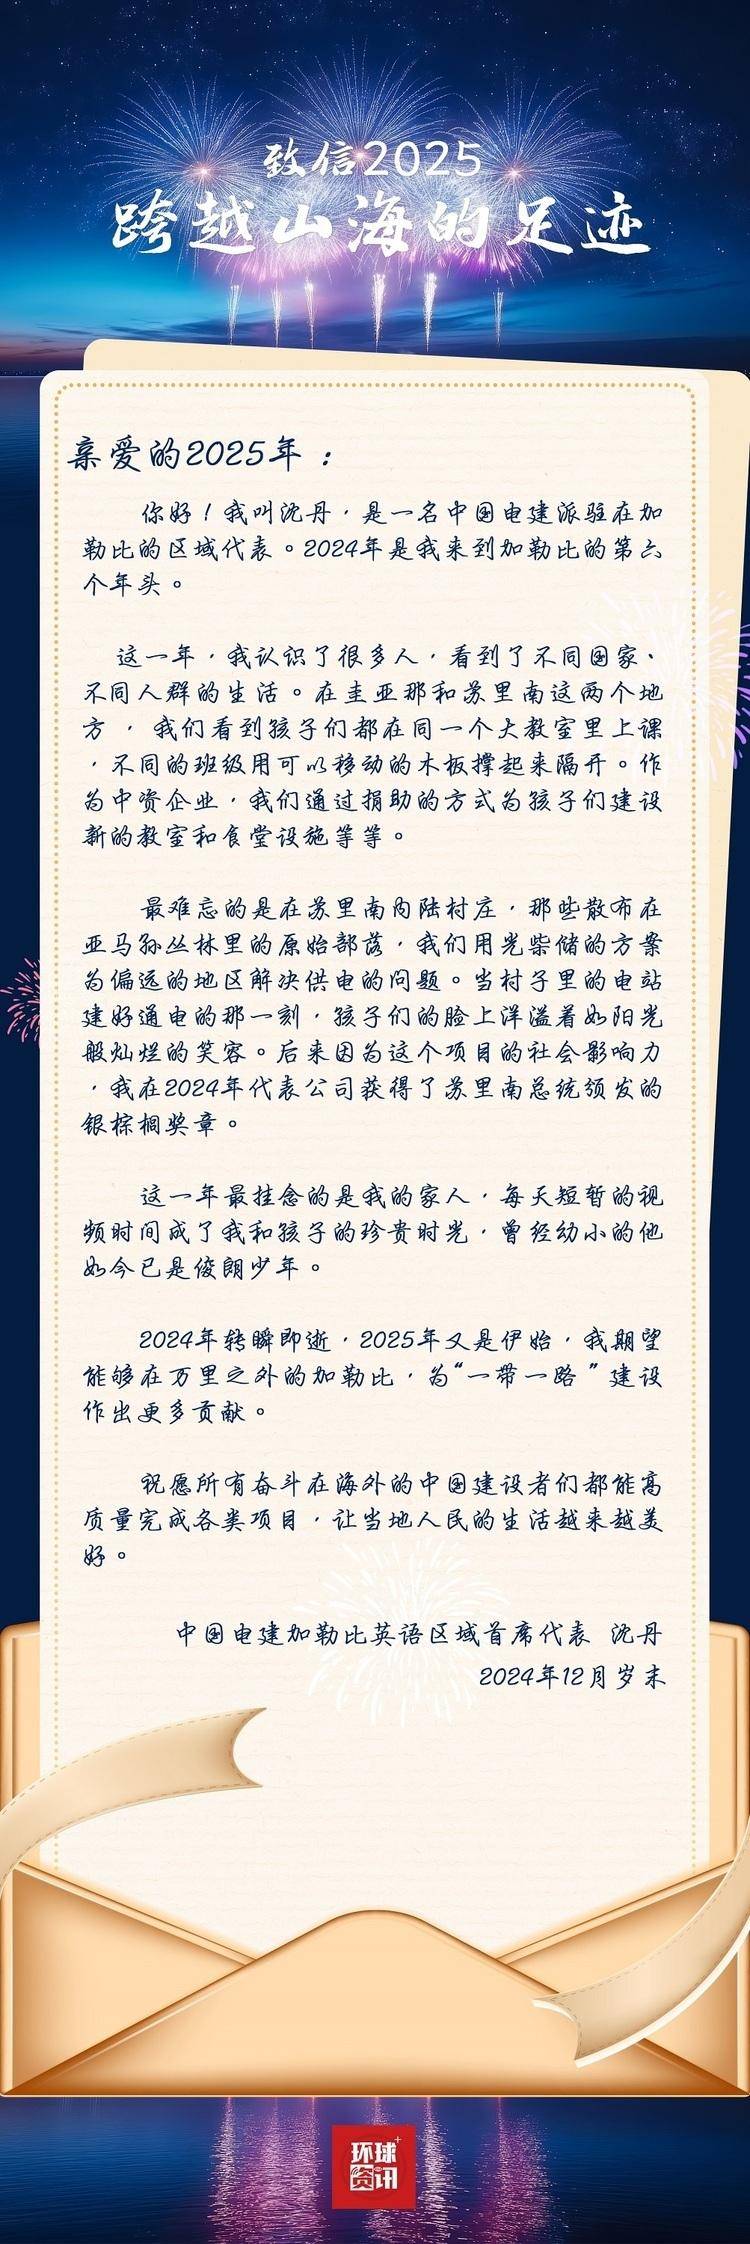 致信2025
跨越山海的足迹
亲爱的2025年：
你好！我叫沈丹，是一名中国电建派驻在加
勒比的区域代表。2024年是我来到加勒比的第六
个年头。
这一年，我认识了很多人，看到了不同国家、
不同人群的生活。在圭亚那和苏里南这两个地
方，我们看到孩子们都在同一个大教室里上课
，不同的班级用可以移动的木板撑起来隔开。作
为中资企业，我们通过捐助的方式为孩子们建设
新的教室和食堂设施等等。
最难忘的是在苏里南内陆村庄，那些散布在
亚马孙丛林里的原始部落，我们用光柴储的方案
为偏远的地区解决供电的问题。当村子里的电站
建好通电的那一刻，孩子们的脸上洋溢着如阳光
般灿烂的笑容。后来因为这个项目的社会影响力
，我在2024年代表公司获得了苏里南总统颁发的
银棕榈奖章。
这一年最挂念的是我的家人，每天短暂的视
频时间成了我和孩子的珍贵时光，曾经幼小的他
如今已是俊朗少年。
2024年转瞬即逝，2025年又是伊始，我期望
能够在万里之外的加勒比，为“一带一路”建设
作出更多贡献。
祝愿所有奋斗在海外的中国建设者们都能高
质量完成各类项目，让当地人民的生活越来越美
好。
中国电建加勒比英语区域首席代表 沈丹
2024年12月岁末
环球+
资讯